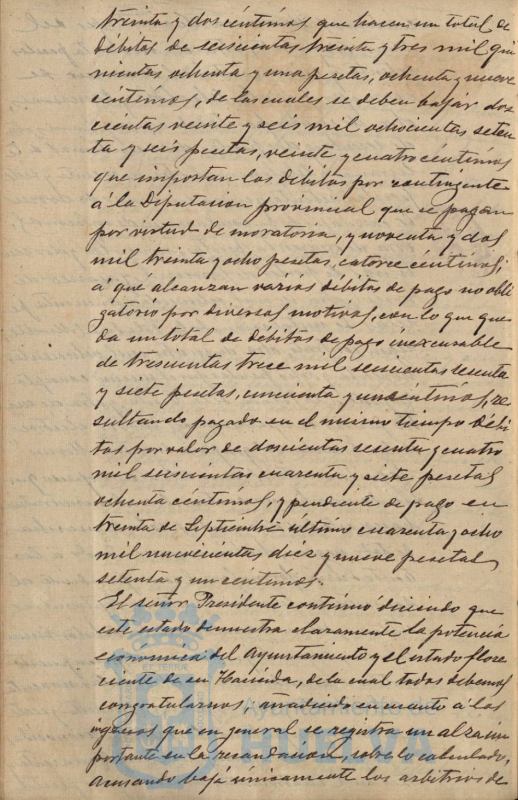 treinta y dos céntimos que hacen un total de
débitos de seiscientas treinta y tres mil qui
nientas ochenta y una pesetas, ochenta y nueve
céntimos, de las cuales se deben bajar dos
cientas veinte y seis mil ochocientas seten
ta y seis pesetas, veinte y cuatro céntimos
que importan los débitos por contingente
á la Diputacion provincial que se pagan
por virtud de moratoria, y noventa y dos
mil treinta y ocho pesetas, catorce céntimos,
á que alcanzan varios débitos de pago no obli
gatorio por diversos motivos, con lo que que
da un total de débitos de pago inexcusable
de trescientas trece mil seiscientas sesenta
y siete pesetas, cincuenta y un céntimos, re
sultando pagado en el mismo tiempo débi
tos por valor de doscientas sesenta y cuatro
mil seiscientas cuarenta y siete pesetas
ochenta céntimos, y pendiente de pago en
treinta de Septiembre último cuarenta y ocho
mil nuevecientas diez y nueve pesetas
setenta y un céntimos.
El señor Presidente continuó diciendo que
este estado demuestra claramente la potencia
economica del Ayuntamiento y el estado flore
ciente de su Hacienda, de la cual todos debemos
congratularnos; añadiendo en cuanto á los
ingresos que en general se registra un alza im
portante en la recaudacion, sobre lo calculado,
acusando baja únicamente los arbitrios de